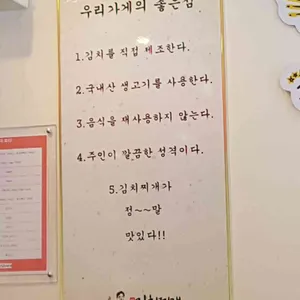 우리가게의 좋은점
1.김치를 직접 제조한다.
2.국내산 생고기를 사용한다.
3.음식을 재사용하지 않는다.
4.주인이 깔끔한 성격이다.
5.김치찌개가
정~~말
맛있다!!